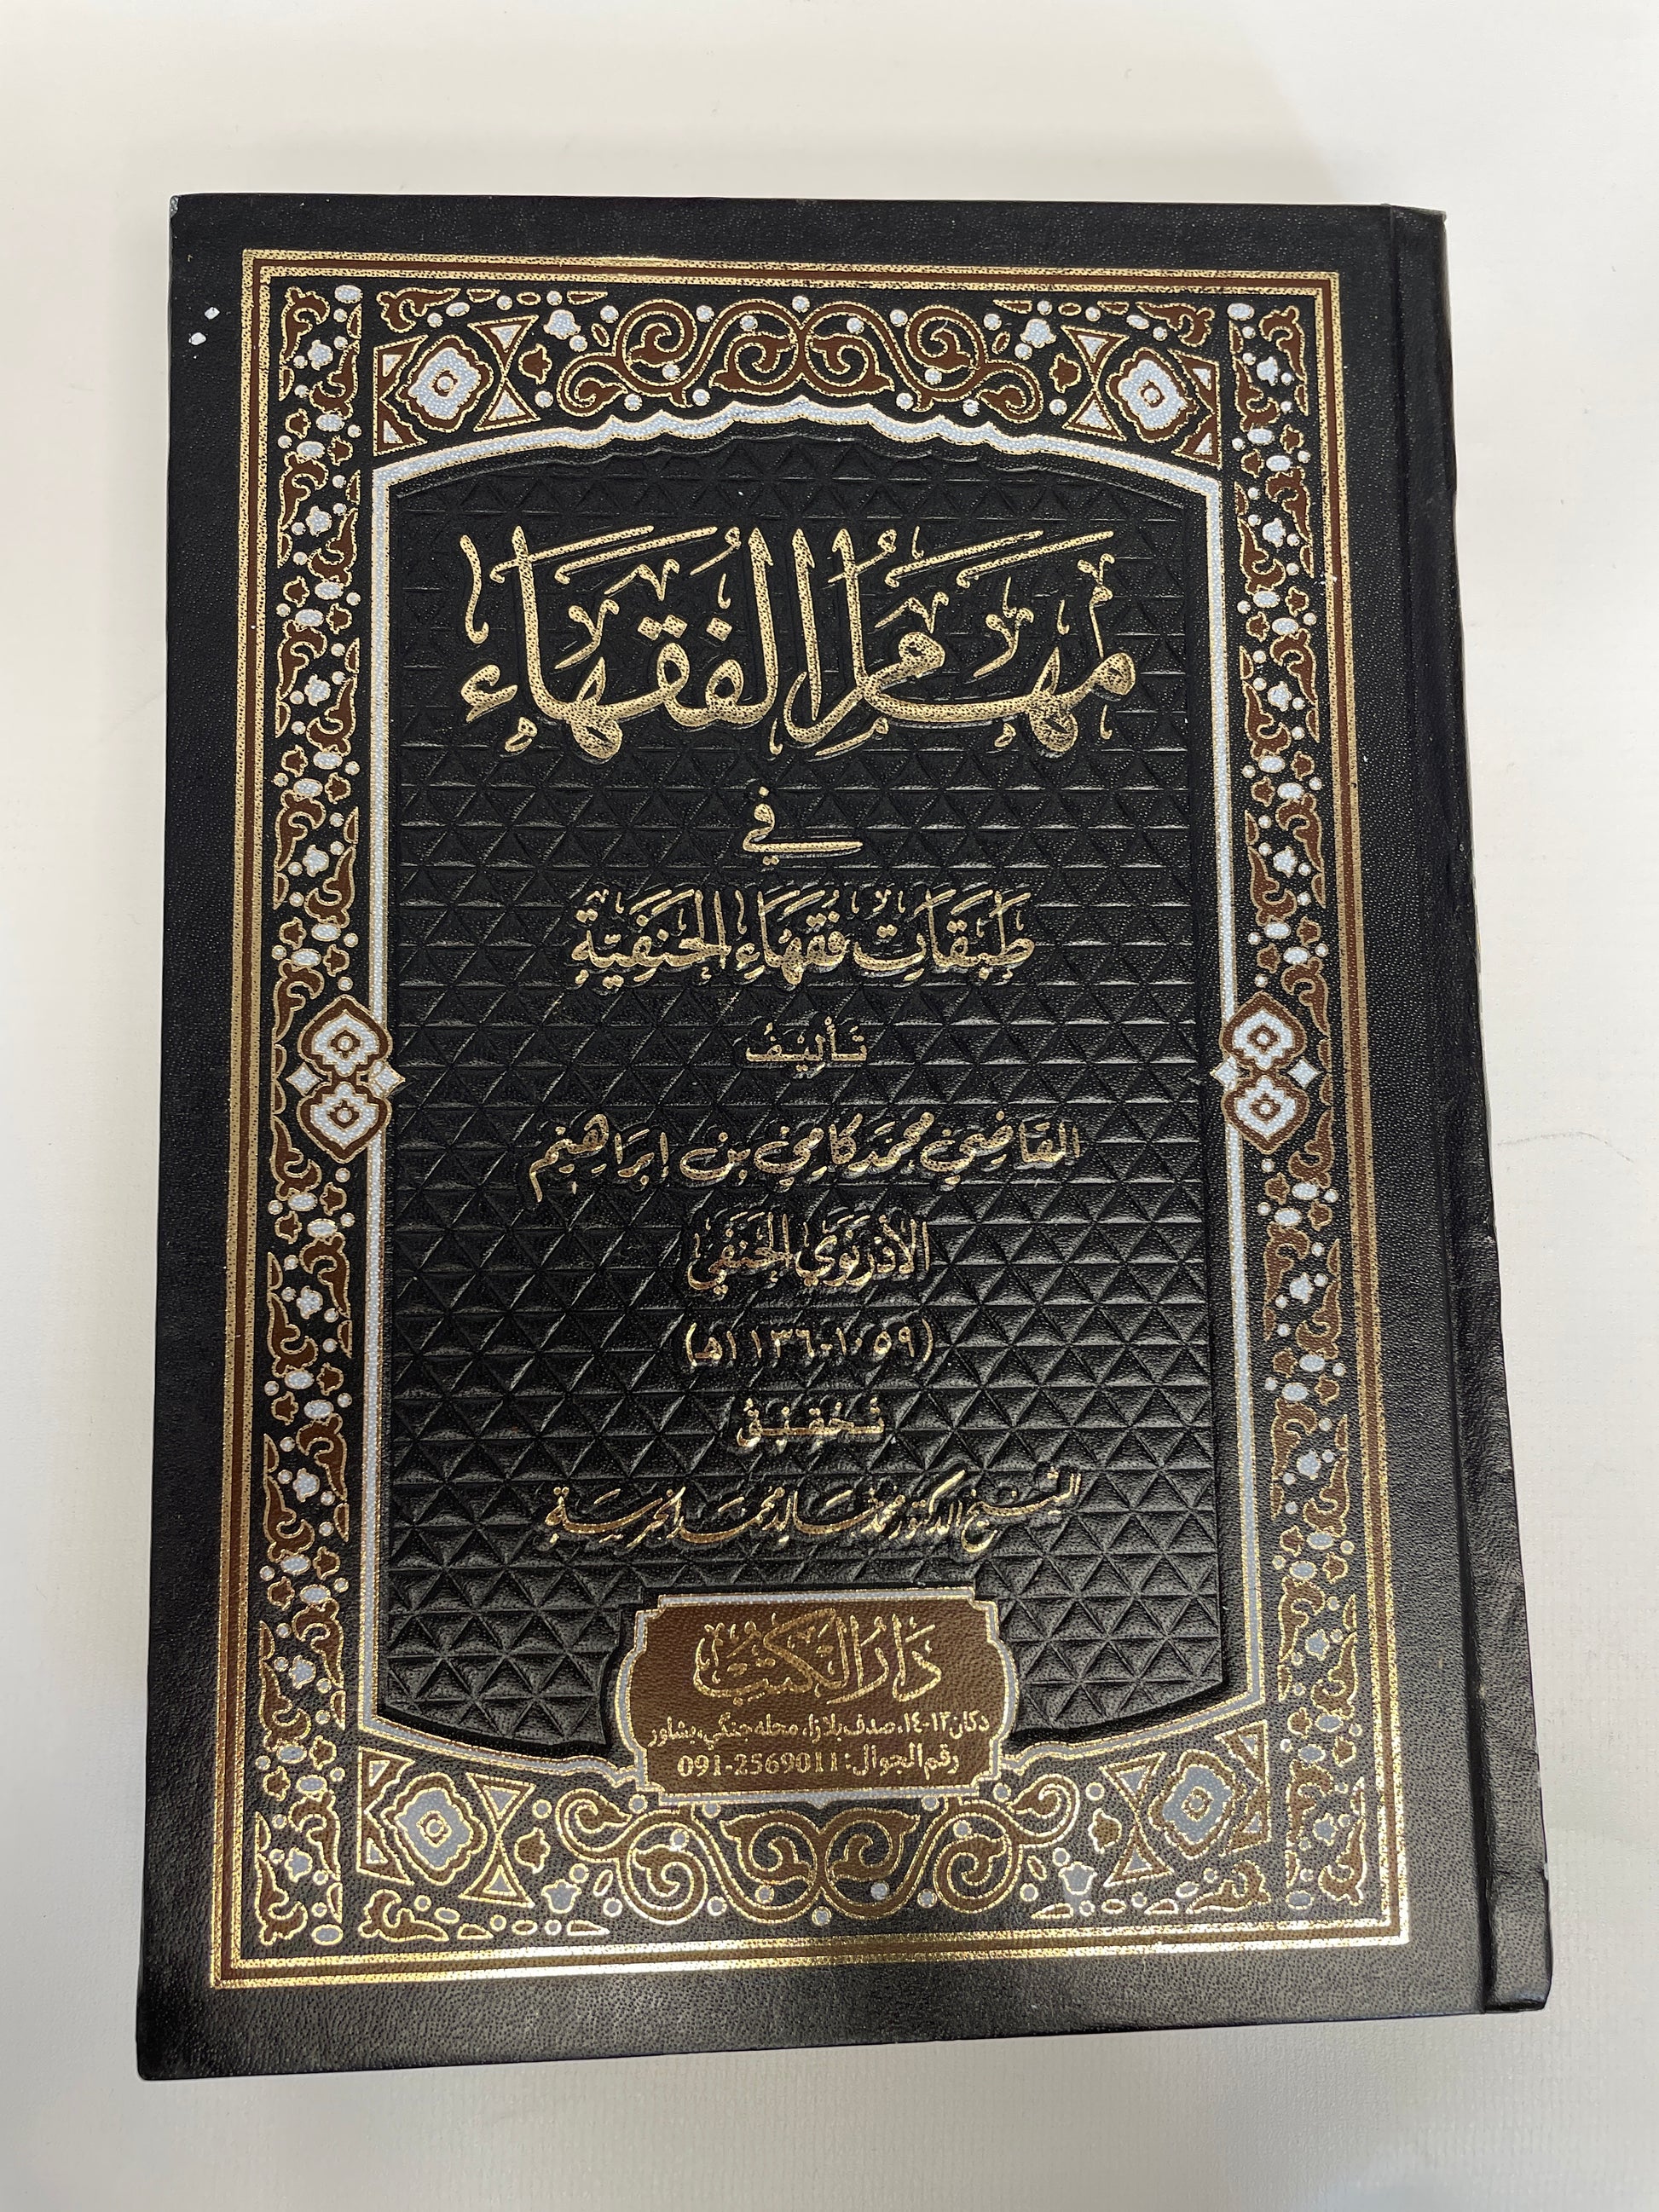 مَهَامُّ الفُقَهَاءِ
في
طَبَقَاتِ فُقَهَاءِ الحَنَفِيَّةِ
تَأْلِيفُ
القَاضِي مُحَمَّد كَامِي بن إِبرَاهِيم
الأَدْرَنَوِي الحَنَفِي
(١٠٥٩-١١٣٦هـ)
تَحْقِيقُ
الشيخ الدكتور محمد خالد محمد الخرسة
دَارُ الكُتُبْ
دكان ١٣-١٤، صدف پلازا، محله جنگي، پشاور
رقم الجوال: 091-2569011